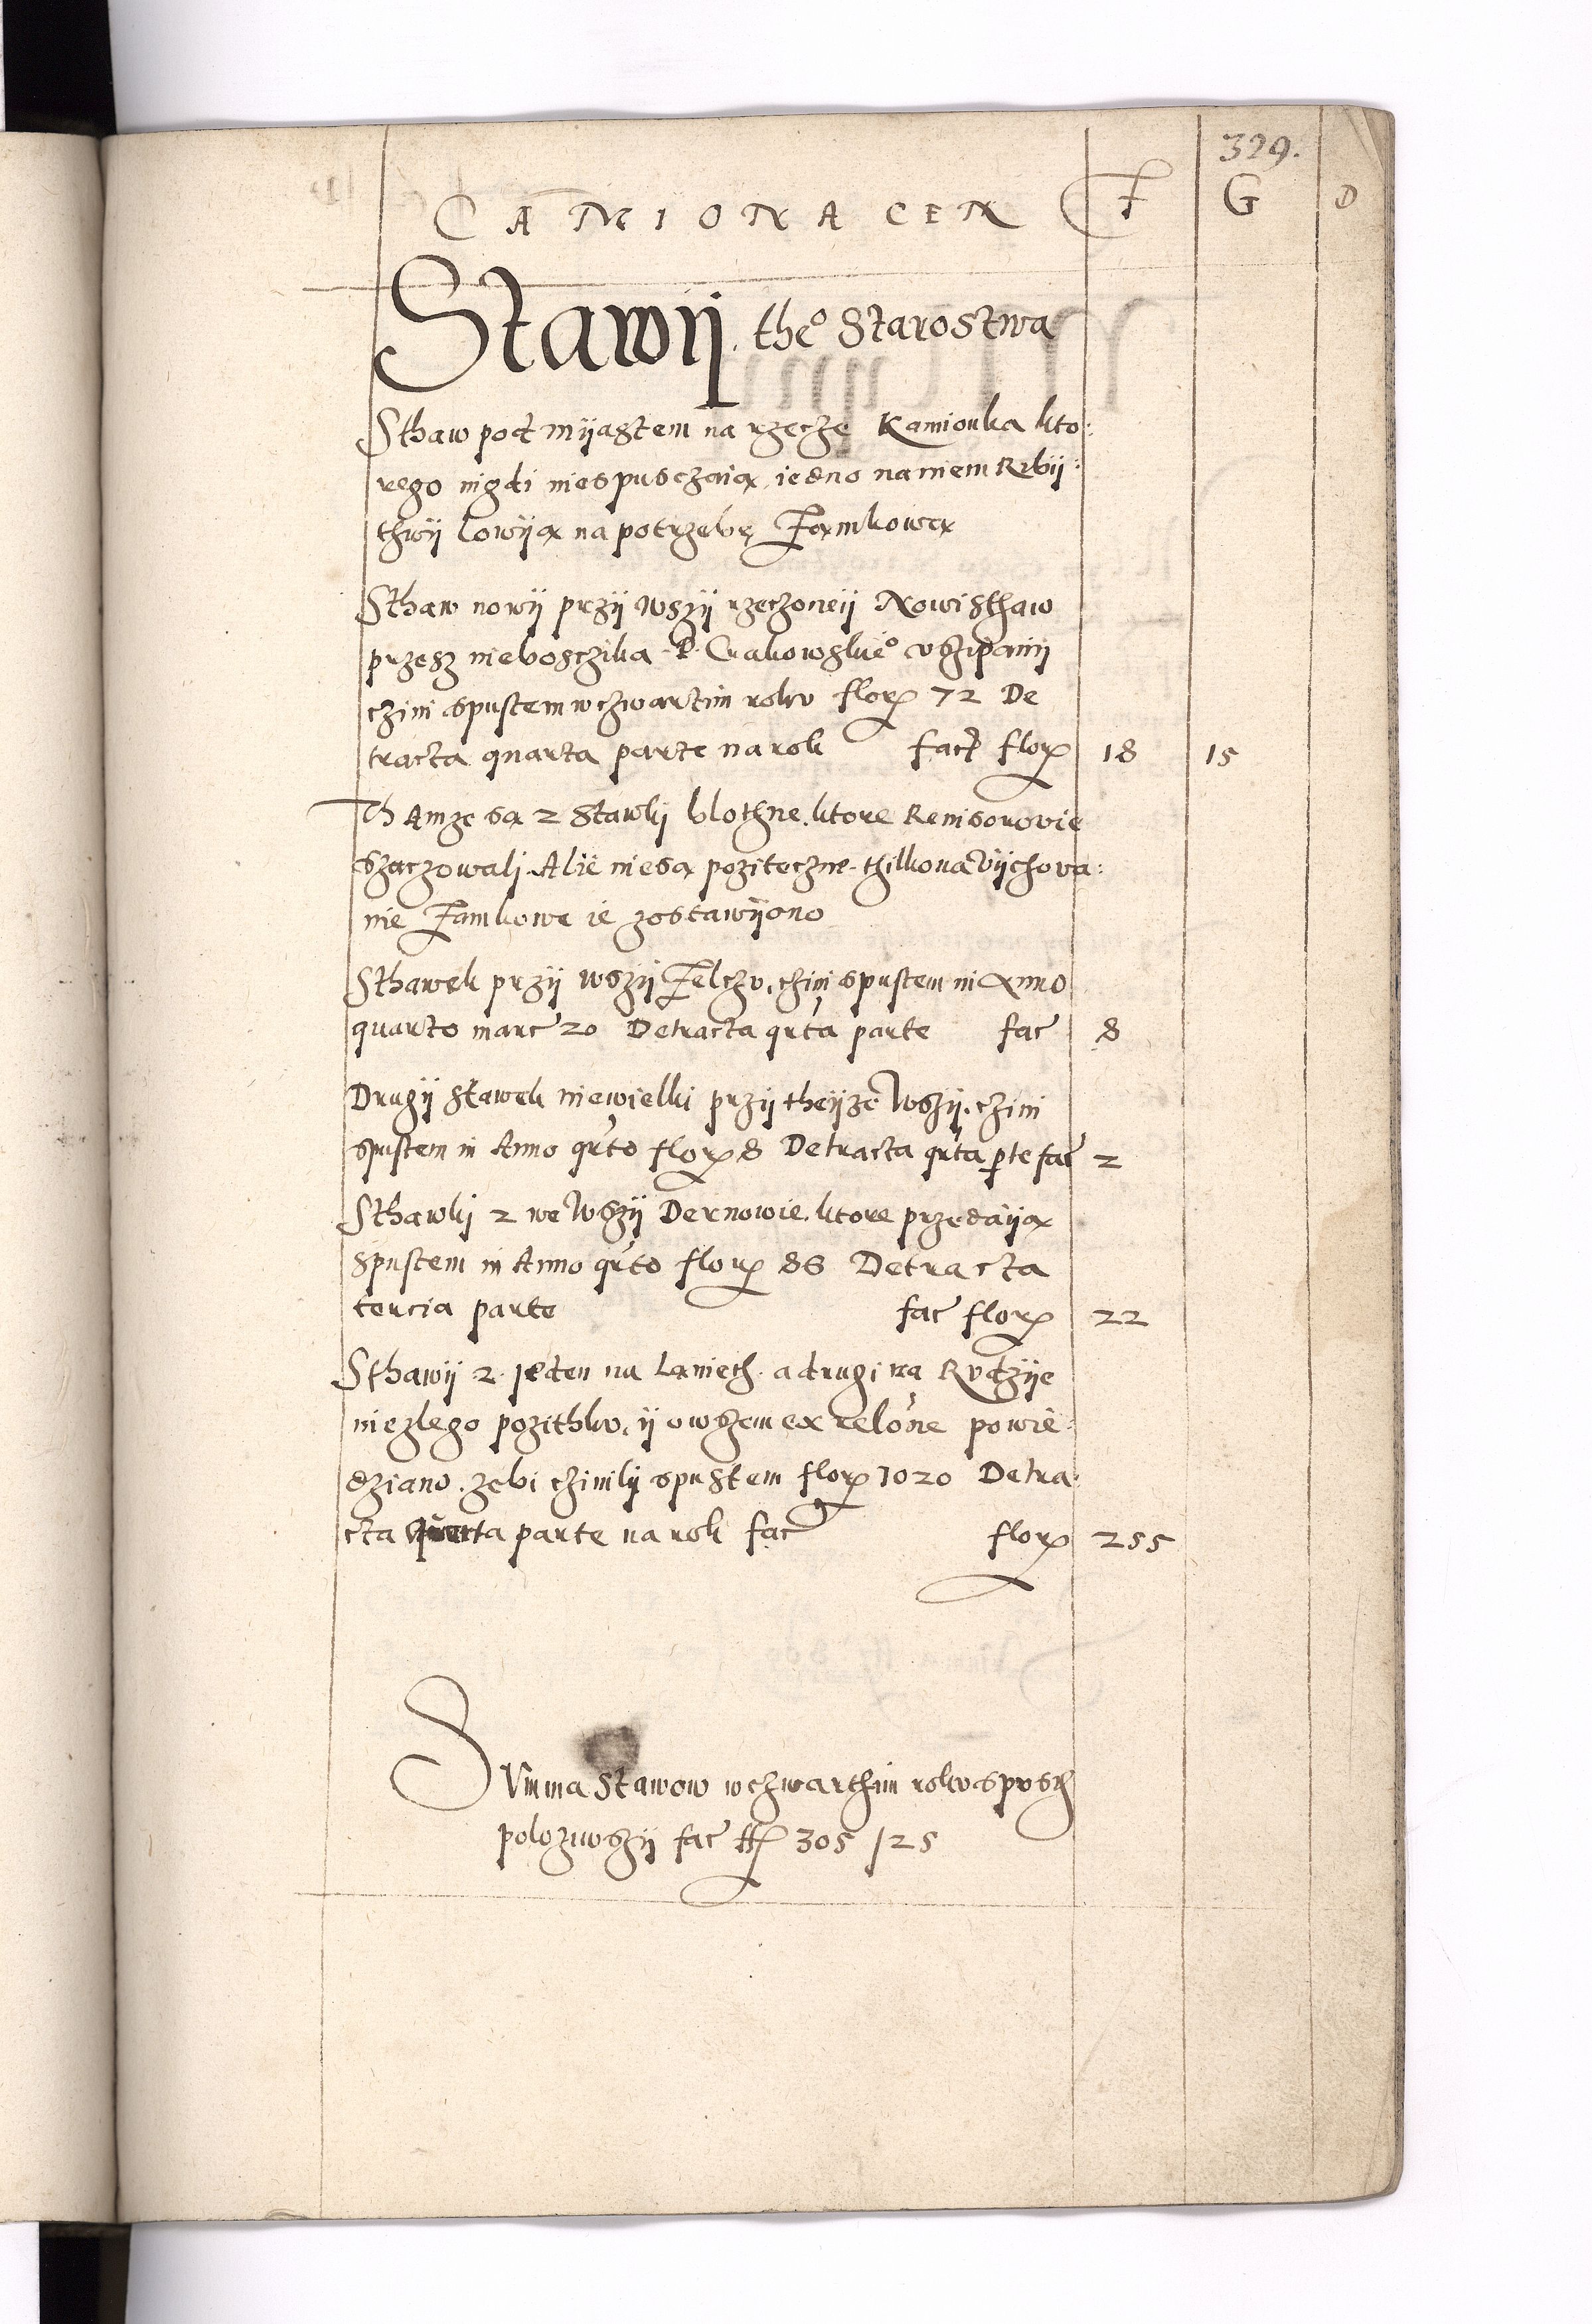 329.
CAMIONACEN F G D
Stawÿ the° Starostwa
Sthaw pod mÿastem na rzecze Kamionka kto:
rego nigdi niespusczaią, iedno na niem Ribÿ:
thwÿ lowÿą na potrzebę Zamkową
Sthaw nowÿ przÿ wszÿ rzeczoneÿ Nowi Sthaw
przesz nieboszczika P. Crakowskie° vszipanÿ
czini spustem w czwartim roku flor 72 De
tracta quarta parte na rok fact flor 18 15
Thamże są 2 Stawkÿ blothne. ktore Renisorovie
szaczowali. Alie niesą poziteczne. thilko na Vÿchova:
nie Zamkowe ie zostawÿono
Sthawek przÿ wszÿ Zelczu, czini spustem in Anno
quarto marc 20 Detracta qrta parte fac 8
Drugÿ stawek niewielki przÿ theÿze wszÿ. czini
spustem in Anno qrto flor 8 Detracta qrta pte fac 2
Sthawkÿ 2 we wszÿ Dernowie. ktore przedaÿą
spustem in Anno qrto flor 86 Detracta
tercia parte fac flor 22
Sthawÿ 2. jeden na Laniech. a drugi na Rudzÿe
niezlego pozithku, ÿ owszem ex relone powie:
dziano. zebi czinilÿ spustem flor 1020 Detra:
cta quarta parte na rok fac flor 255
Summa Stawow w czwarthim roku spusth
polozuwszÿ fac ff 305 / 25